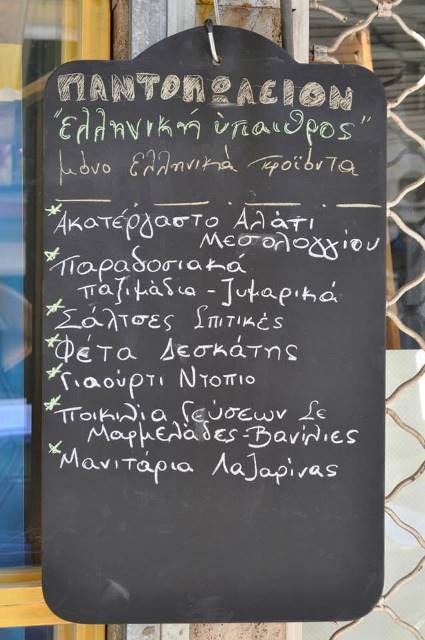 ΠΑΝΤΟΠΩΛΕΙΟΝ
"ελληνική ὑπαιθρος"
μόνο ελληνικά προϊόντα
Ακατέργαστο Αλάτι
Μεσολογγίου
Παραδοσιακά
παξιμάδια - Ζυμαρικά
Σάλτσες Σπιτικές
Φέτα Δεσκάτης
Γιαούρτι Ντόπιο
Ποικιλία Γεύσεων Σε
Μαρμελάδες - Βανίλιες
Μανιτάρια Λαζαρίνας